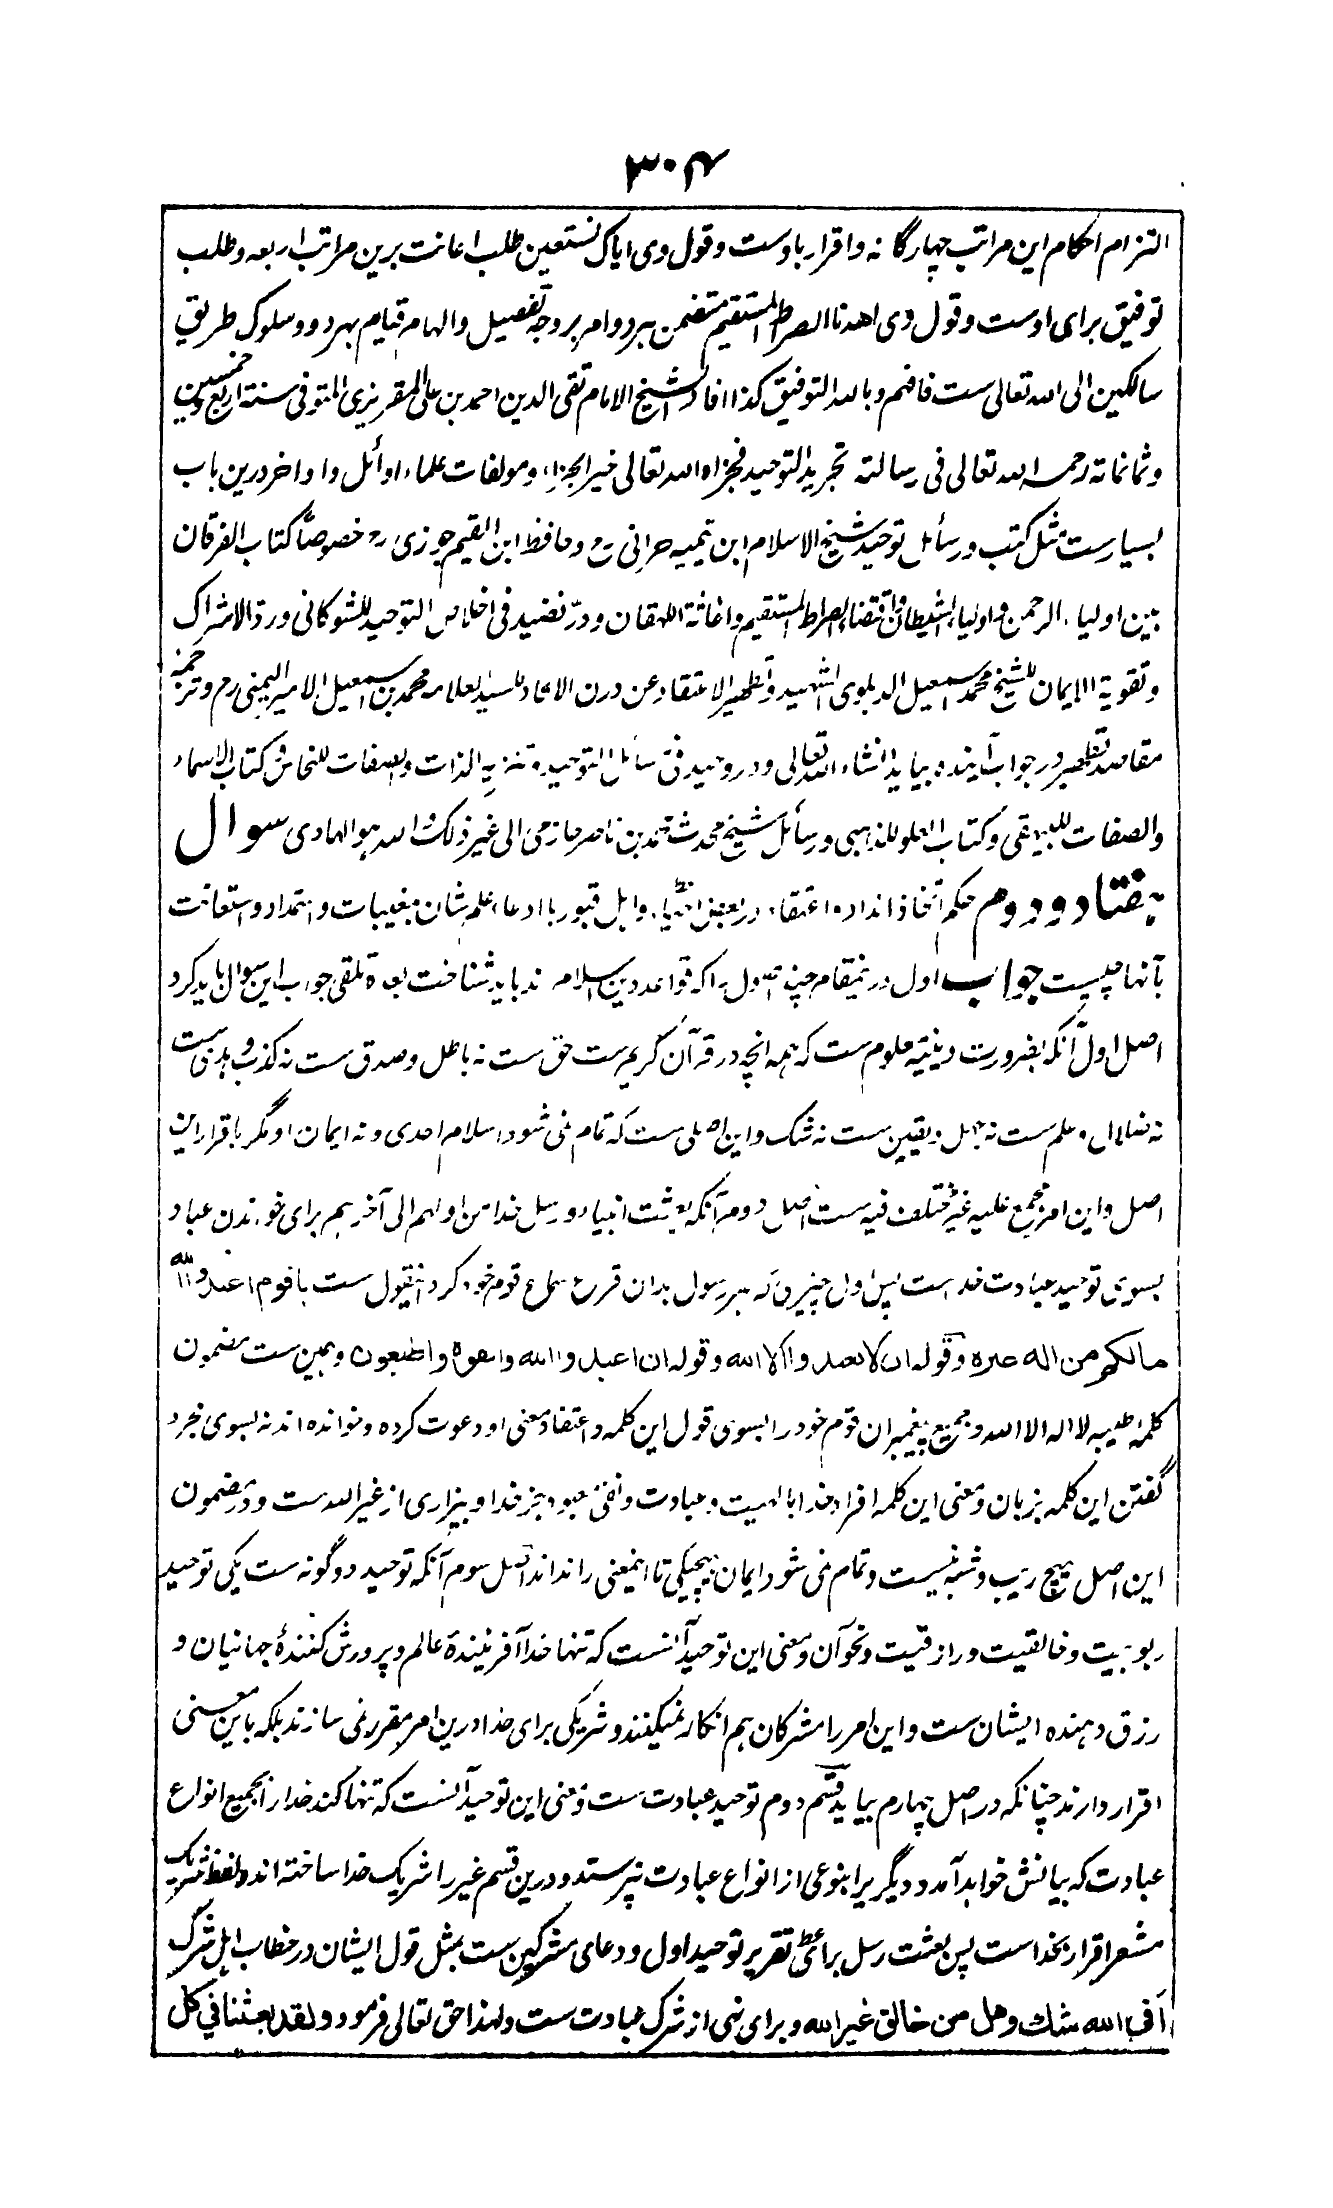 ۳۰۴
التزام احکام این مراتب چهارگانه و اقرار باوست و قول وی ایاک نستعین طلب اعانت برین مراتب اربعه و طلب
توفیق برای اوست و قول وی اهدنا الصراط المستقیم متضمن هر دو امر بروجه تفصیل و الهام قیام بهر دو و سلوک طریق
سالکین الی الله تعالی ست فافهم و بالله التوفیق کذا افاد الشیخ الامام تقی الدین احمد بن علی المقریزی المتوفی سنة اربع و خمسین
و ثمانمائة رحمه الله تعالی فی رسالته تجرید التوحید فجزاه الله تعالی خیر الجزاء و مولفات علماء اوائل و اواخر درین باب
بسیارست مثل کتب و رسائل توحید شیخ الاسلام ابن تیمیه حرانی رح و حافظ ابن القیم جوزی رح خصوصاً کتاب الفرقان
بین اولیاء الرحمن و اولیاء الشیطان و اقتضاء الصراط المستقیم و اغاثة اللهفان و درّ نضید فی اخلاص التوحید للشوکانی و رد الاشراک
و تقویة الایمان للشیخ محمد اسمعیل الدهلوی الشهید و تطهیر الاعتقاد عن درن الالحاد للسید العلامه محمد بن اسمعیل الامیر الیمنی رح و ترجمهٔ
مقاصد تطهیر در جواب آینده بیاید انشاء الله تعالی و در وحید فی مسائل التوحید و تنزیه الذات و الصفات للنحاس و کتاب الاسماء
والصفات للبیهقی و کتاب العلو للذهبی و رسائل شیخ محدث حمد بن ناصر حازمی الی غیر ذلک و الله هو الهادی سوال
هفتاد و دوم حکم اتخاذ انداد و اعتقاد در بعض احیاء و اهل قبور با ادعاء علم شان بمغیبات و استمداد و استعانت
بآنها چیست جواب اول درینمقام چند اصول را که قواعد دین اسلام اند باید شناخت بعده تلقی جواب این سوال باید کرد
اصل اول آنکه بضرورت دینیه معلوم ست که همه انچه در قرآن کریم ست حق ست نه باطل و صدق ست نه کذب و هدی ست
نه ضلال و علم ست نه جهل و یقین ست نه شک و این اصلی ست که تمام نمی شود اسلام احدی و نه ایمان او مگر باقرار این
اصل و این امر مجمع علیه غیر مختلف فیه ست اصل دوم آنکه بعثت انبیاء و رسل خدا من اولهم الی آخرهم برای خواندن عباد
بسوی توحید عبادت خداست پس اول چیزی که هر رسول بدان قرع سماع قوم خود کرد اینقول ست یا قوم اعبدوا الله
مالکم من اله غیره و قوله ان لا تعبدوا الا الله و قوله ان اعبدوا الله واتقوه و اطیعون و همین ست مضمون
کلمهٔ طیبه لا اله الا الله و جمیع پیغمبران قوم خود را بسوی قول این کلمه و اعتقاد معنی او دعوت کرده و خوانده اند نه بسوی مجرد
گفتن این کلمه بزبان و معنی این کلمه افراد خدا بالهیت و عبادت و نفی معبود بجز خدا و بیزاری از غیر الله ست و در مضمون
این اصل هیچ ریب و شبه نیست و تمام نمی شود ایمان هیچیکی تا اینمعنی را نداند اصل سوم آنکه توحید دو گونه ست یکی توحید
ربوبیت و خالقیت و رازقیت و نحو آن و معنی این توحید آنست که تنها خدا آفرینندهٔ عالم و پرورش کنندهٔ جهانیان و
رزق دهنده ایشان ست و این امر را مشرکان هم انکار نمیکنند و شریکی برای خدا درین امر مقرر نمی سازند بلکه باین معنی
اقرار دارند چنانکه در اصل چهارم بیاید قسم دوم توحید عبادت ست و معنی این توحید آنست که تنها کند خدا را بجمیع انواع
عبادت که بیانش خواهد آمد و دیگریرا بنوعی از انواع عبادت نپرستد و درین قسم غیر را شریک خدا ساخته اند و لفظ شریک
مشعر اقرار بخداست پس بعثت رسل برای تقریر توحید اول و دعای مشرکین ست بمثل قول ایشان در خطاب اهل شرک
أفی الله شک و هل من خالق غیر الله و برای نهی از شرک عبادت ست و لهذا حق تعالی فرمود و لقد بعثنا فی کل